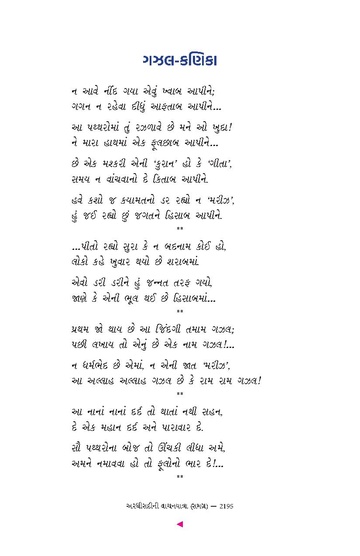 ગઝલ-કણિકા
ન આવે નીંદ ગયા એવું ખ્વાબ આપીને;
ગગન ન રહેવા દીધું આફતાબ આપીને...
આ પથ્થરોમાં તું રઝળાવે છે મને ઓ ખુદા!
ને મારા હાથમાં એક ફૂલછાબ આપીને...
છે એક મશ્કરી એની ‘કુરાન’ હો કે ‘ગીતા’,
સમય ન વાંચવાનો દે કિતાબ આપીને.
હવે કશો જ કયામતનો ડર રહ્યો ન ‘મરીઝ’,
હું જઈ રહ્યો છું જગતને હિસાબ આપીને.
**
...પીતો રહ્યો સુરા કે ન બદનામ કોઈ હો,
લોકો કહે ખુવાર થયો છે શરાબમાં.
એવો ડરી ડરીને હું જન્નત તરફ ગયો,
જાણે કે એની ભૂલ થઈ છે હિસાબમાં...
**
પ્રથમ જો થાય છે આ જિંદગી તમામ ગઝલ;
પછી લખાય તો એનું છે એક નામ ગઝલ!...
ન ધર્મભેદ છે એમાં, ન એની જાત ‘મરીઝ’,
આ અલ્લાહ અલ્લાહ ગઝલ છે કે રામ રામ ગઝલ!
**
આ નાનાં નાનાં દર્દ તો થાતાં નથી સહન,
દે એક મહાન દર્દ અને પારાવાર દે.
સૌ પથ્થરોના બોજ તો ઊંચકી લીધા અમે,
અમને નમાવવા હો તો ફૂલોનો ભાર દે!...
**
અરધીસદીની વાચનયાત્રા (સમગ્ર) — 2195